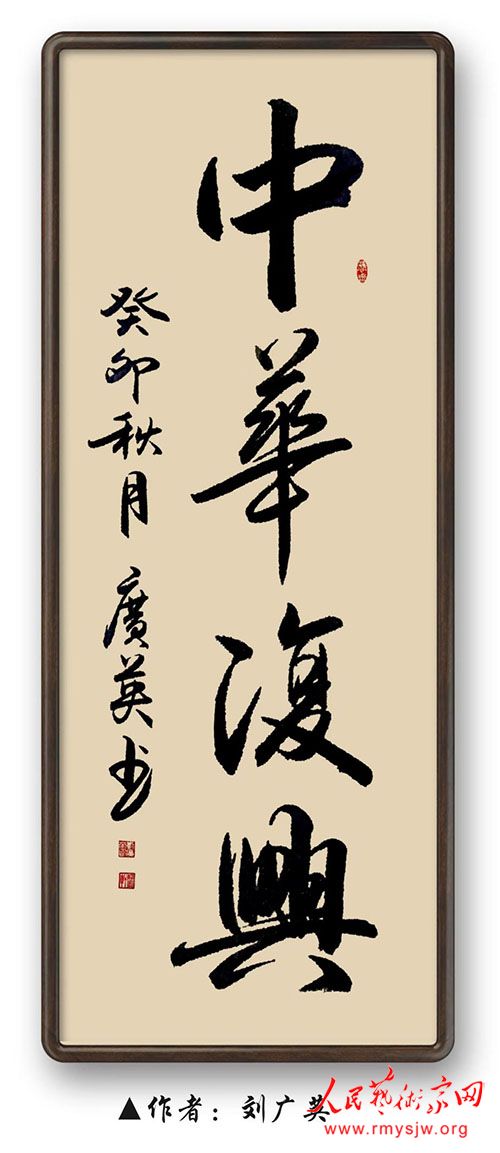 中華復興
癸卯秋月 廣英书
▲作者：刘广英
人民藝術家网
www.rmysjw.org